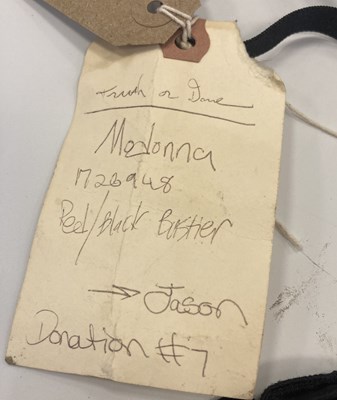 Truth or Dare
Madonna
1726948
Red/Black Bustier
→ Jason
Donation #7